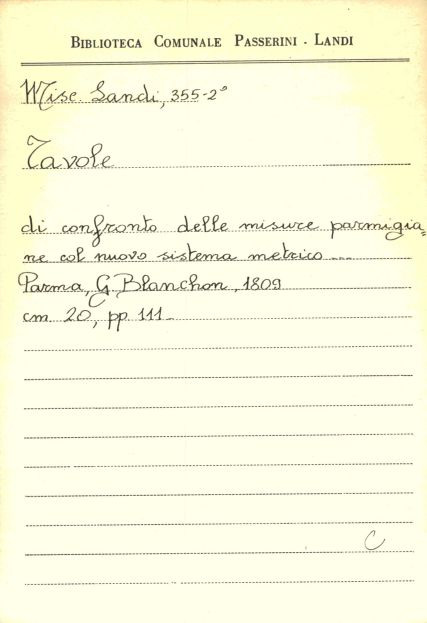 BIBLIOTECA COMUNALE PASSERINI - LANDI
Misc. Landi, 355-2°
Tavole
di confronto delle misure parmigia=
ne col nuovo sistema metrico ...
Parma, G. Blanchon, 1809
cm. 20, pp. 111.
C